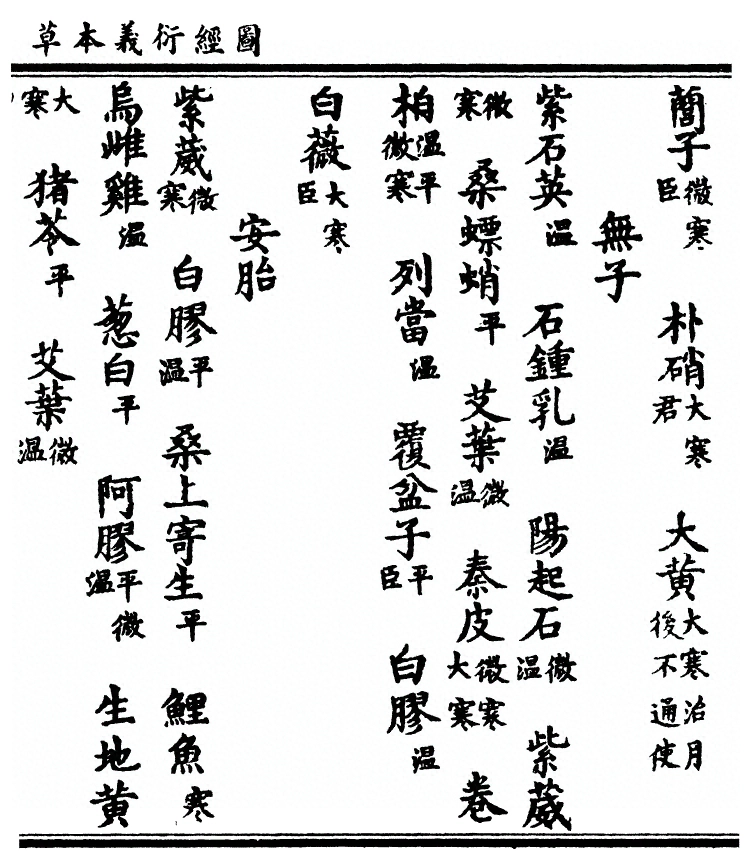 圖經衍義本草
䕡子微寒臣 朴硝大寒君 大黃大寒治月後不通使
無子
紫石英温 石鍾乳温 陽起石微温 紫葳
微寒 桑螵蛸平 艾葉微温 秦皮微寒大寒 卷
柏温平微寒 列當温 覆盆子平臣 白膠温
白薇大寒臣
安胎
紫葳微寒 白膠平温 桑上寄生平 鯉魚寒
烏雌雞温 葱白平 阿膠平微温 生地黃
大寒 猪苓平 艾葉微温